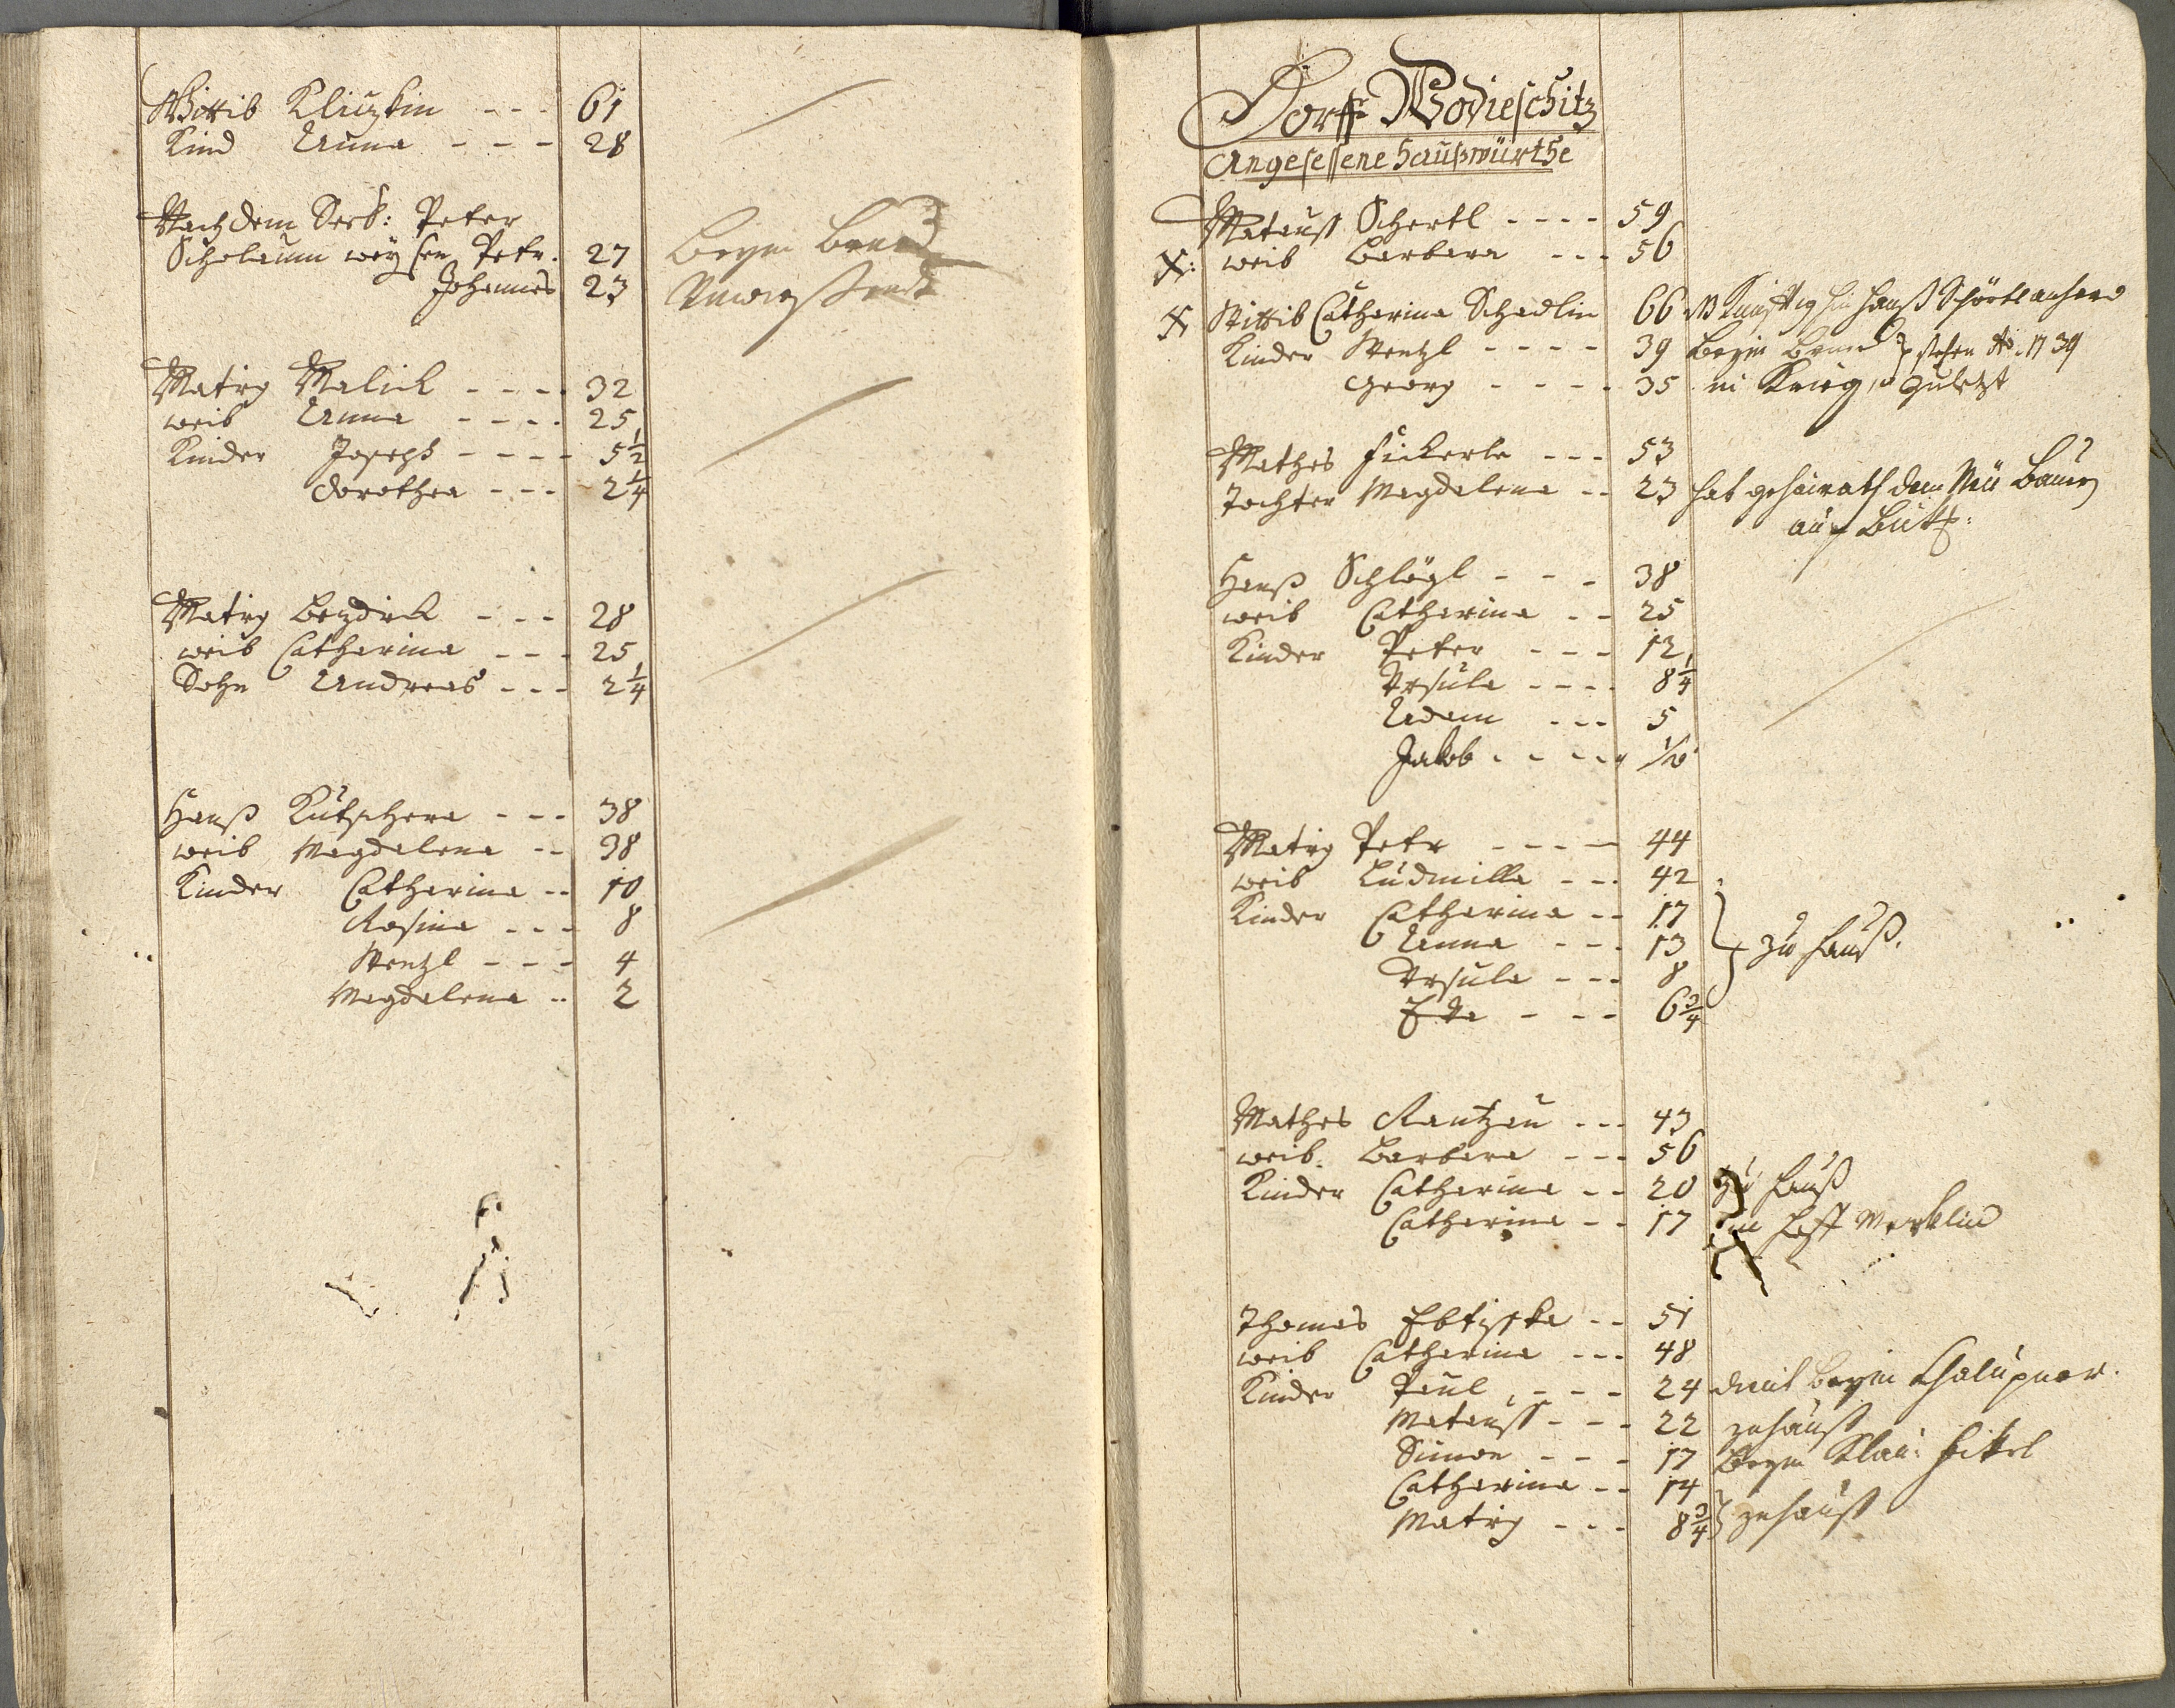 Wittib Kliczkin - - - 61
Kind Anna - - - 28
Nach dem Verst: Peter
Scholaum weysen Petr. 27 beym
Johannes 23
Matieg Malick - - - 32
weib Anna - - - - 25
Kinder Joseph - - - - 5 1/2
Dorothea - - - 2 1/4
Matieg Bezdiek - - - 28
weib Catharina - - - 25
Sohn Andreas - - - 2 1/4
Hanß Kutschera - - - 38
weib Magdalena - - 38
Kinder Catharina - - 10
Rosina - - - 8
Wentzl - - - 4
Magdalena - - 2
Dorff Wodieschitz
Angesessene Haußwürthe
Matauß Schertl - - - - 59
X: weib Barbara - - - 56
X Wittib Catharina Schadlin 66
Kinder Wentzl - - - - 39 beym
Georg - - - - 35 in Krieg
Mathes Fickerle - - - 53
Tochter Magdalena - - 23 hat geheirath dem Neu Bauer
auf
Hanß Schlögl - - - 38
weib Catharina - - 25
Kinder Peter - - - 12
Ursula - - - - 8 1/4
Adam - - - 5
Jakob - - - -
Matieg Petr - - - - 44
weib Ludmilla - - - 42
Kinder Catharina - - 17
Anna - - - 13 zu Hauß.
Ursula - - - 8
Eva - - - 6 3/4
Mathes Rantzau - - - 43
weib Barbara - - - 56
Kinder Catharina - - 20 zu Hauß
Catharina - - 17 Hoff Merklin
Thomas - - 51
weib Catharina - - - 48
Kinder Paul - - - 24 dient beym Chalupner.
Matauß - - - 22 zuhauß
Simon - - - 17 beym
Catharina - - 14
Matieg - - - 8 3/4 zuhauß